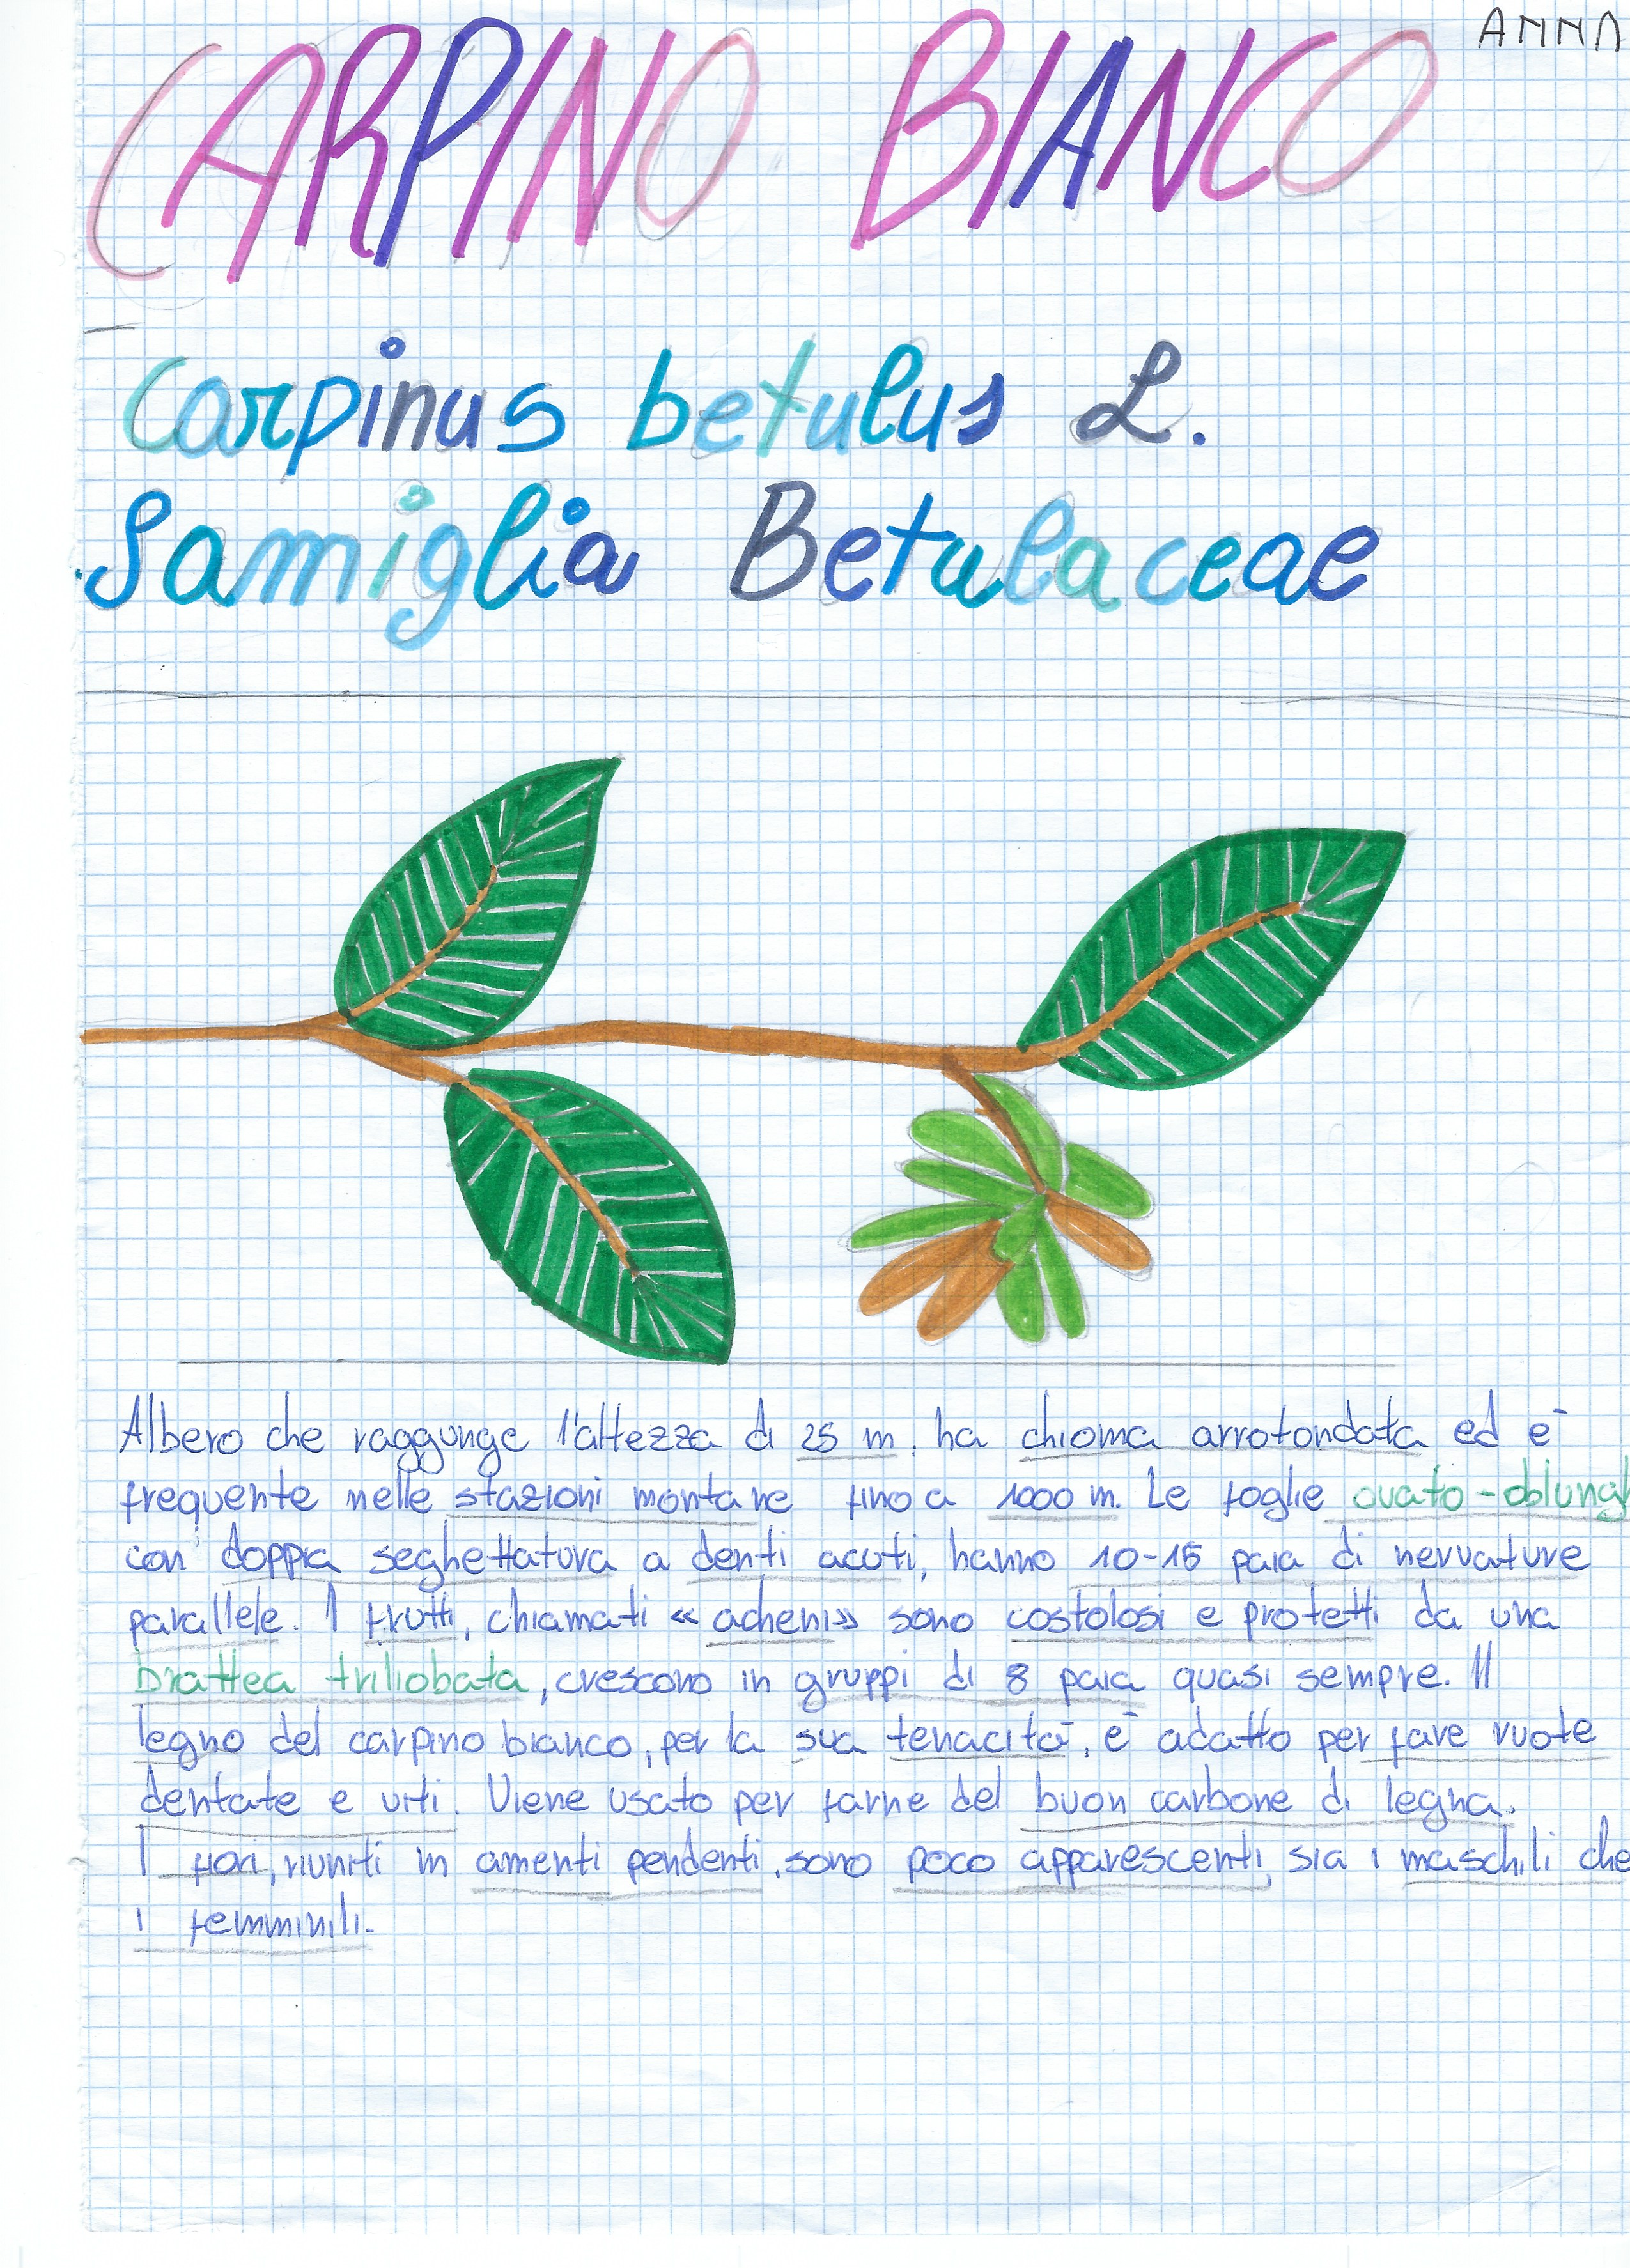 ANNA
CARPINO BIANCO
Carpinus betulus L.
Famiglia Betulaceae
Albero che raggunge l'altezza di 25 m, ha chioma arrotondata ed è
frequente nelle stazioni montane fino a 1000 m. Le foglie ovato-oblungh
con doppia seghettatura a denti acuti, hanno 10-15 paia di nervature
parallele. I frutti, chiamati « acheni» sono costolosi e protetti da una
brattea triliobata, crescono in gruppi di 8 paia quasi sempre. Il
legno del carpino bianco, per la sua tenacità, è adatto per fare ruote
dentate e viti. Viene usato per farne del buon carbone di legna.
I fiori, riuniti in amenti pendenti, sono poco apparescenti, sia i maschili che
i femminili.